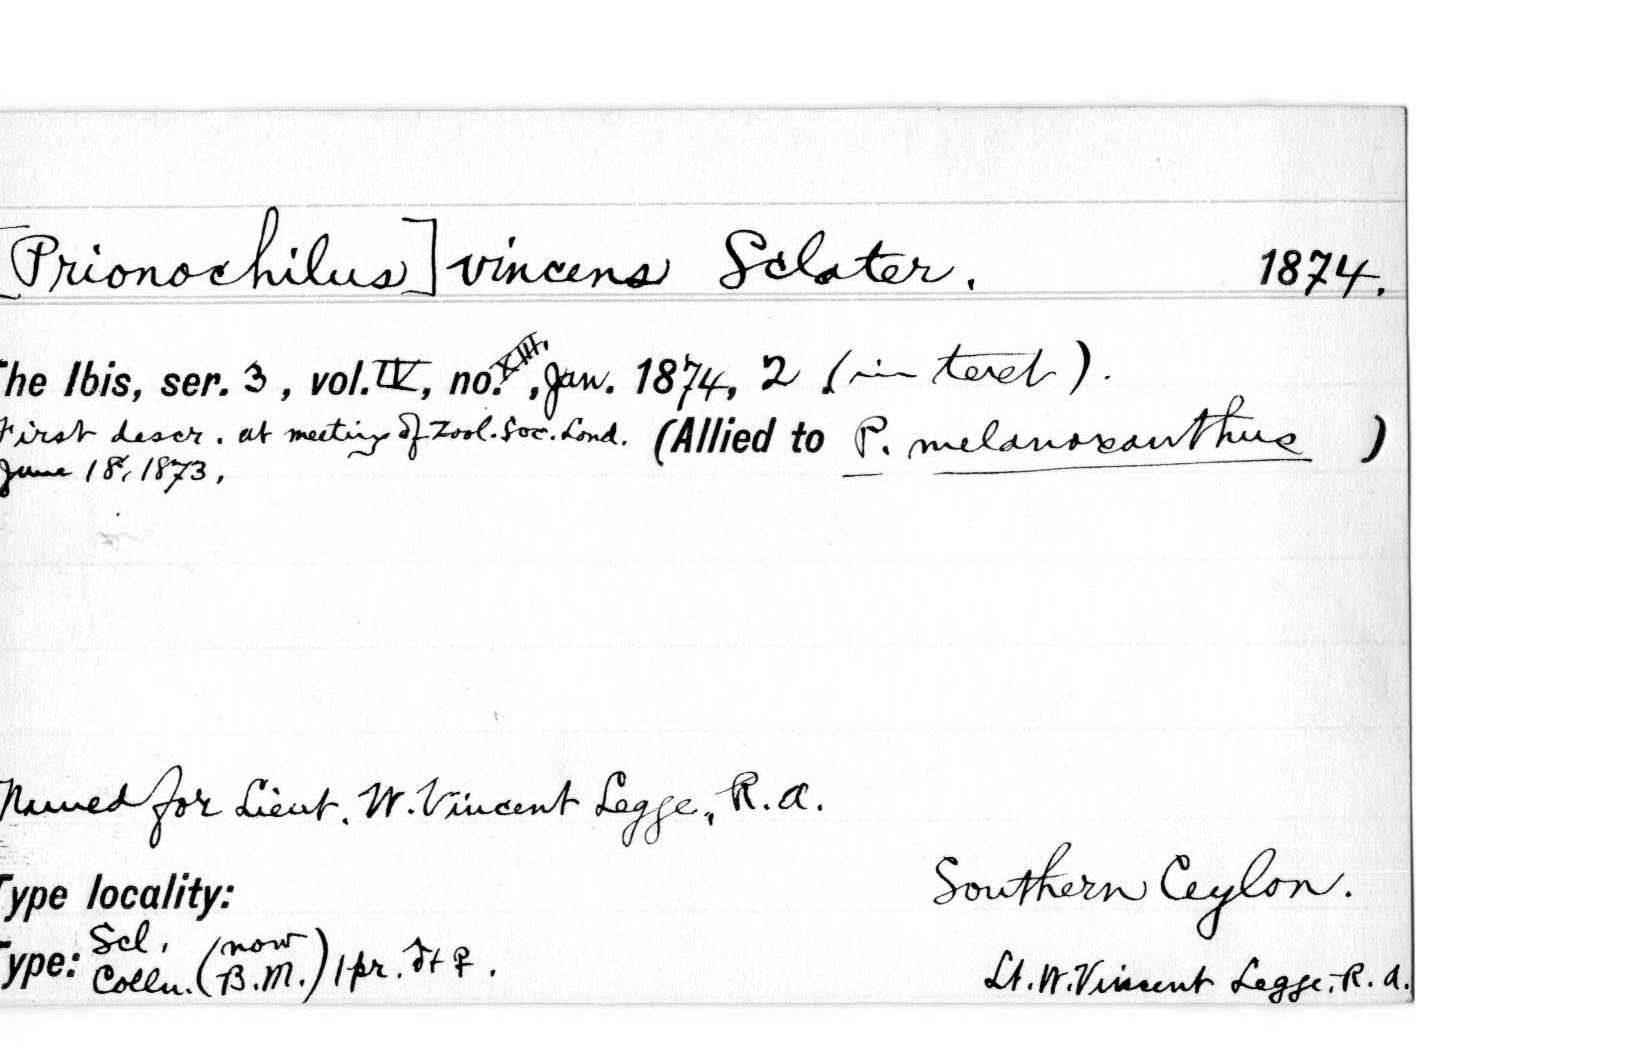 [Prionochilus] vincens Sclater. 1874.
The Ibis, ser. 3, vol. IV, no. XIII, Jan. 1874, 2 (in text).
First descr. at meeting of Zool. Soc. Lond. (Allied to P. melanoxanthus )
June 18, 1873.
Named for Lieut. W. Vincent Legge, R.A.
Type locality: Southern Ceylon.
Type: Scl. Colln. (now B.M.) 1 pr. ♂ + ♀. Lt. W. Vincent Legge, R.A.